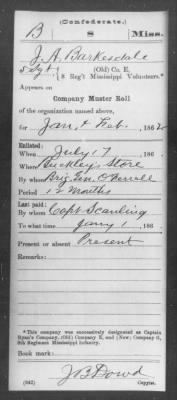 (Confederate.)
B 8 Miss.
J. A. Barkesdale
Sergt., (Old) Co. E,
8 Reg't Mississippi Volunteers.*
Appears on
Company Muster Roll
of the organization named above,
for Jan. & Feb., 1862
Enlisted:
When July 17, 186
Where Buckley Store
By whom Brig. Gen. O'Ferrall
Period 12 Months
Last paid:
By whom Capt Scanling
To what time Jany 1, 186
Present or absent Present
Remarks:
*This company was successively designated as Captain
Ryan's Company, (Old) Company E, and (New) Company G,
8th Regiment Mississippi Infantry.
Book mark:
J B Dowd
(642) Copyist.